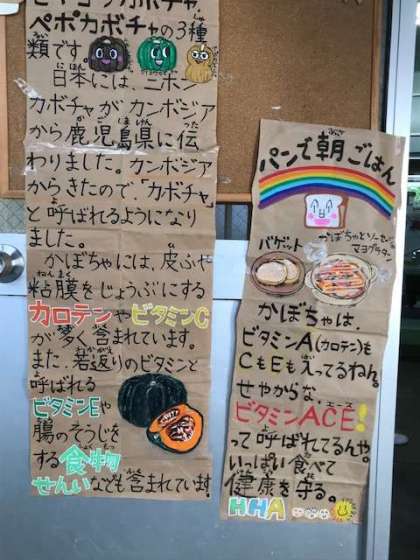 ペポカボチャの3種
類です。
日本には、ニホン
カボチャがカンボジア
から鹿児島県に伝
わりました。カンボジア
からきたので、「カボチャ」
と呼ばれるようになり
ました。
かぼちゃには、皮ふや
粘膜をじょうぶにする
カロテンやビタミンC
が多く含まれています。
また、若返りのビタミンと
呼ばれる
ビタミンEや
腸のそうじを
する食物
せんいなども含まれています。
パンで朝ごはん
バゲット
かぼちゃとソーセージの
マヨグラタン
かぼちゃは、
ビタミンA(カロテン)も
CもEも入ってるねん。
せやからな、
ビタミンACE!
って呼ばれてるんや。
いっぱい食べて
健康を守る。
HHA